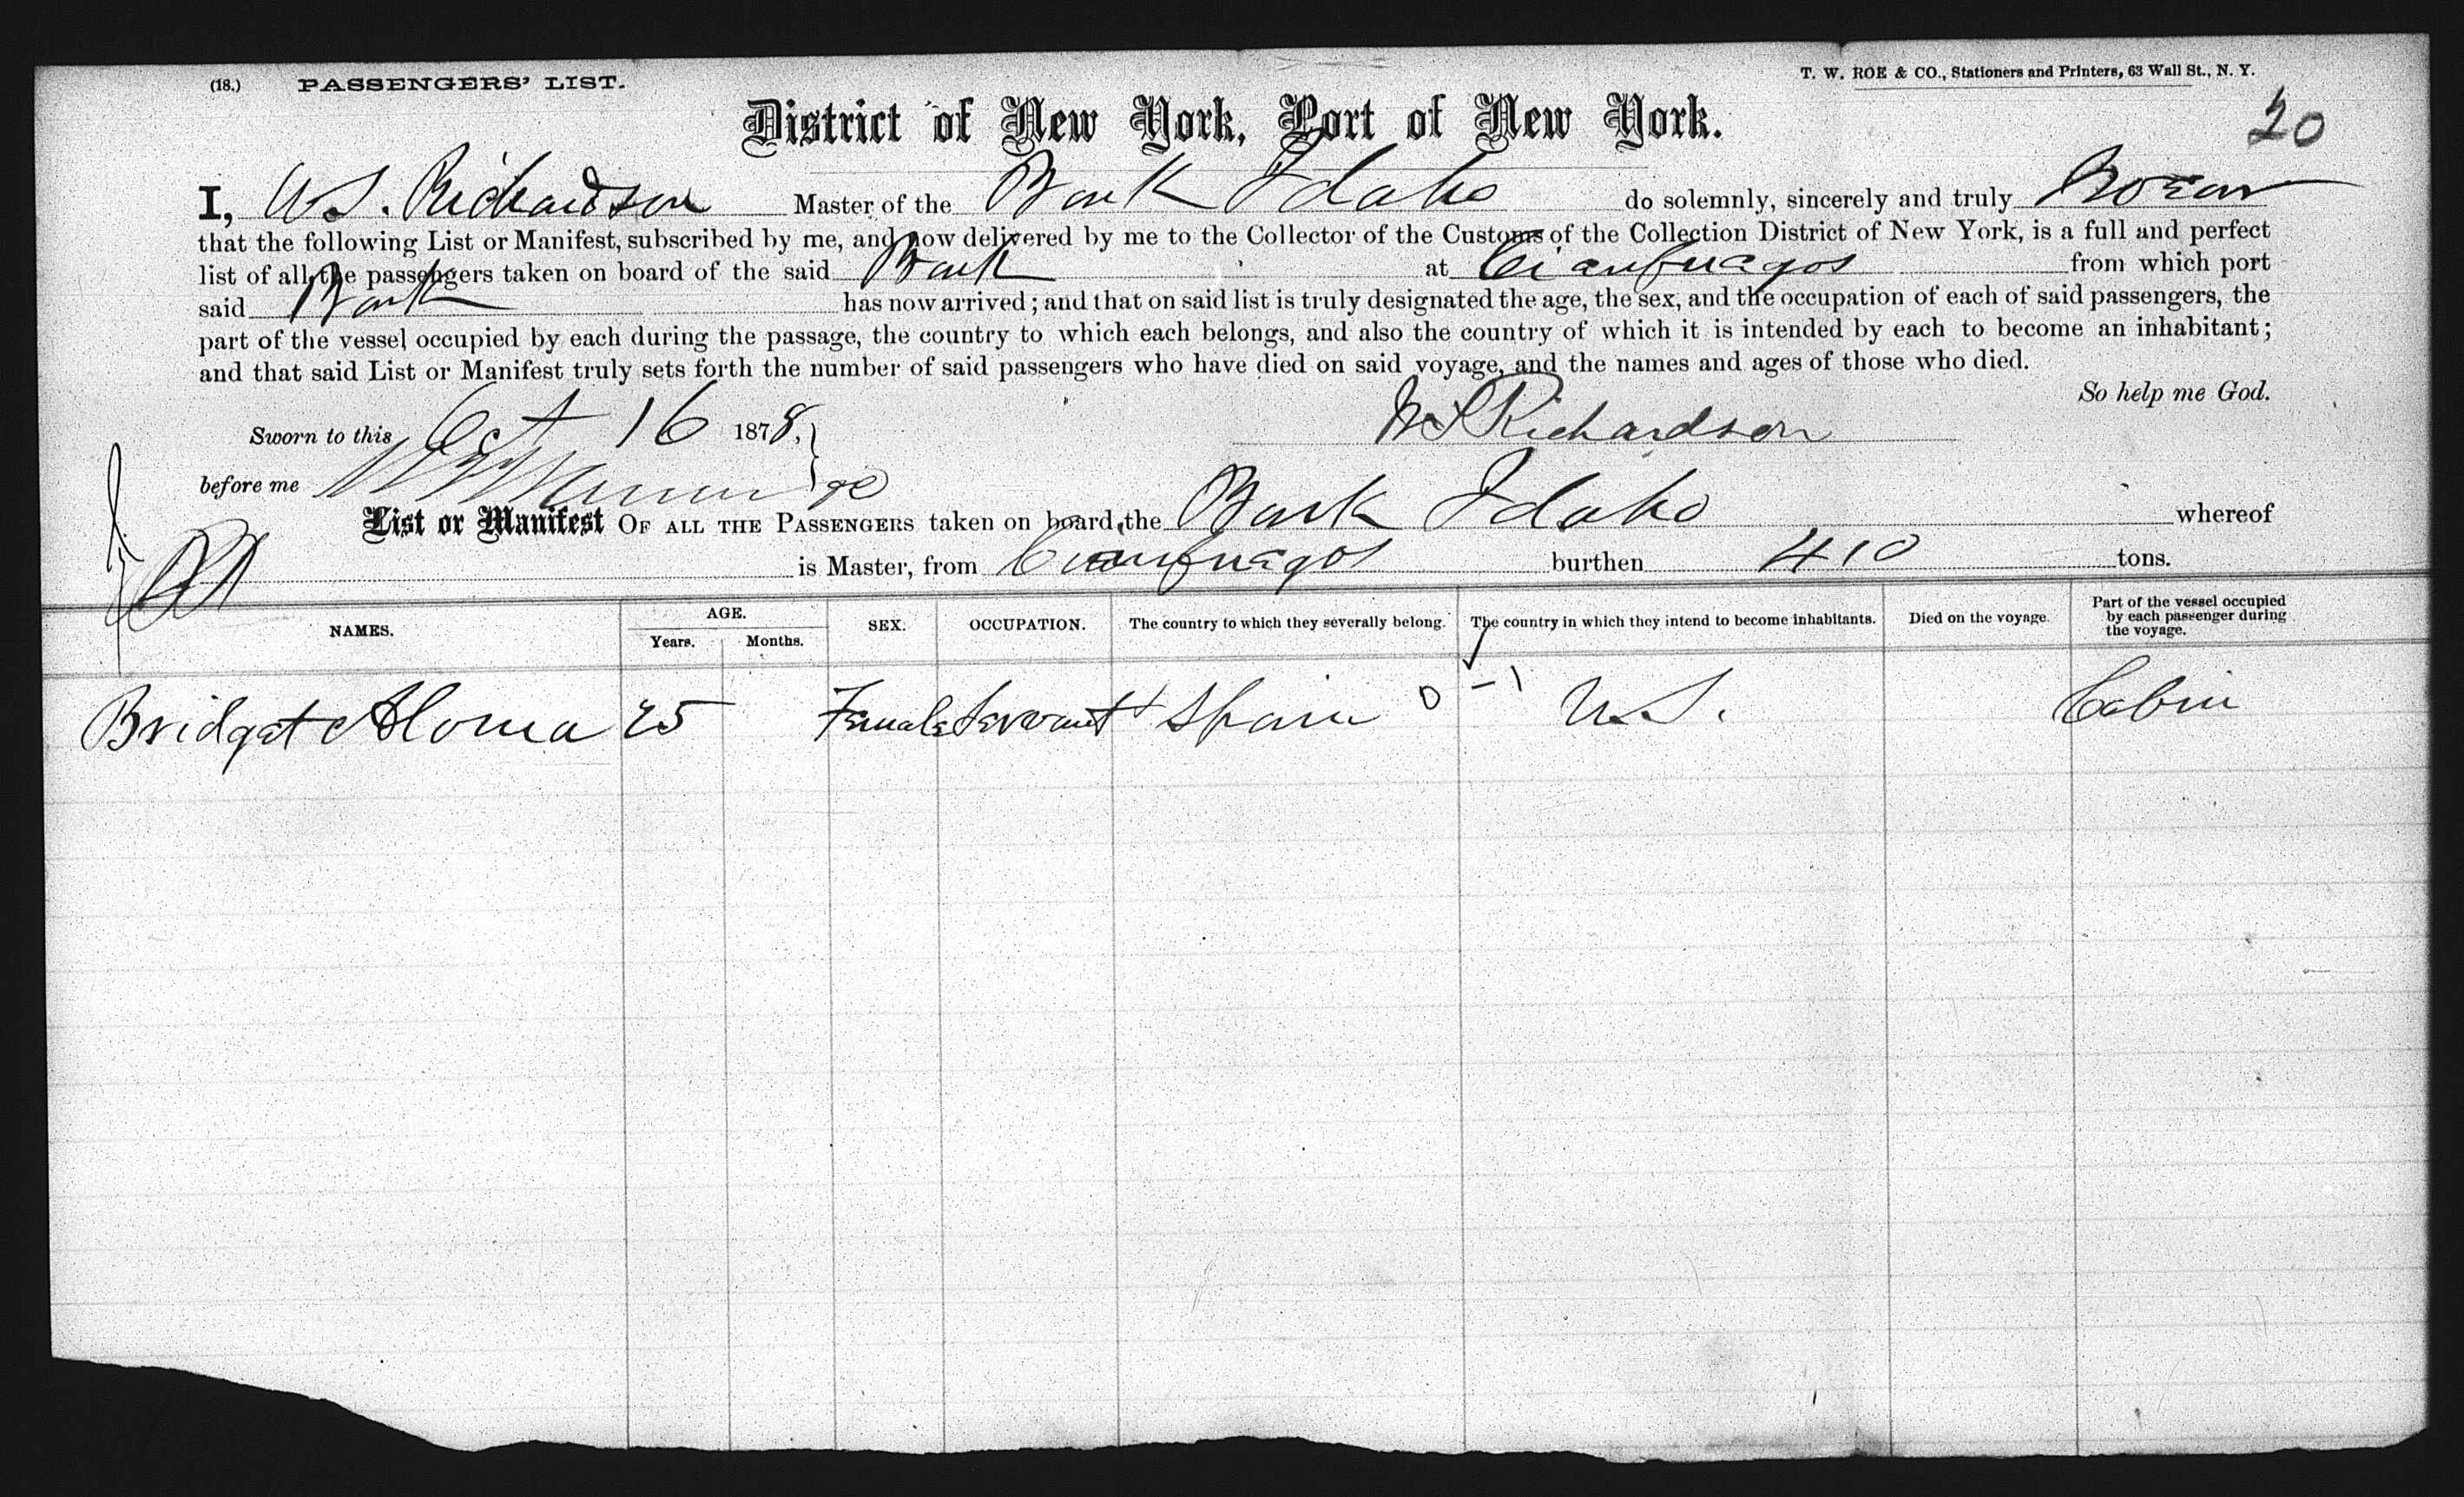 (18.) PASSENGERS' LIST. T. W. ROE & CO., Stationers and Printers, 63 Wall St., N. Y.
District of New York, Port of New York.
20
I, W S. Richardson Master of the Bark Idaho do solemnly, sincerely and truly
that the following List or Manifest, subscribed by me, and now delivered by me to the Collector of the Customs of the Collection District of New York, is a full and perfect
list of all the passengers taken on board of the said Bark at Cianfuagos from which port
said Bark has now arrived; and that on said list is truly designated the age, the sex, and the occupation of each of said passengers, the
part of the vessel occupied by each during the passage, the country to which each belongs, and also the country of which it is intended by each to become an inhabitant;
and that said List or Manifest truly sets forth the number of said passengers who have died on said voyage, and the names and ages of those who died.
So help me God.
Sworn to this Oct 16 1878, W S Richardson
before me
List or Manifest OF ALL THE PASSENGERS taken on board the Bark Idaho whereof
is Master, from Cianfuagos burthen 410 tons.
NAMES. AGE. Years. Months. SEX. OCCUPATION. The country to which they severally belong. The country in which they intend to become inhabitants. Died on the voyage. Part of the vessel occupied by each passenger during the voyage.
Bridget Aloma 25 Female Servant Spain 0 - 1 U.S. Cabin